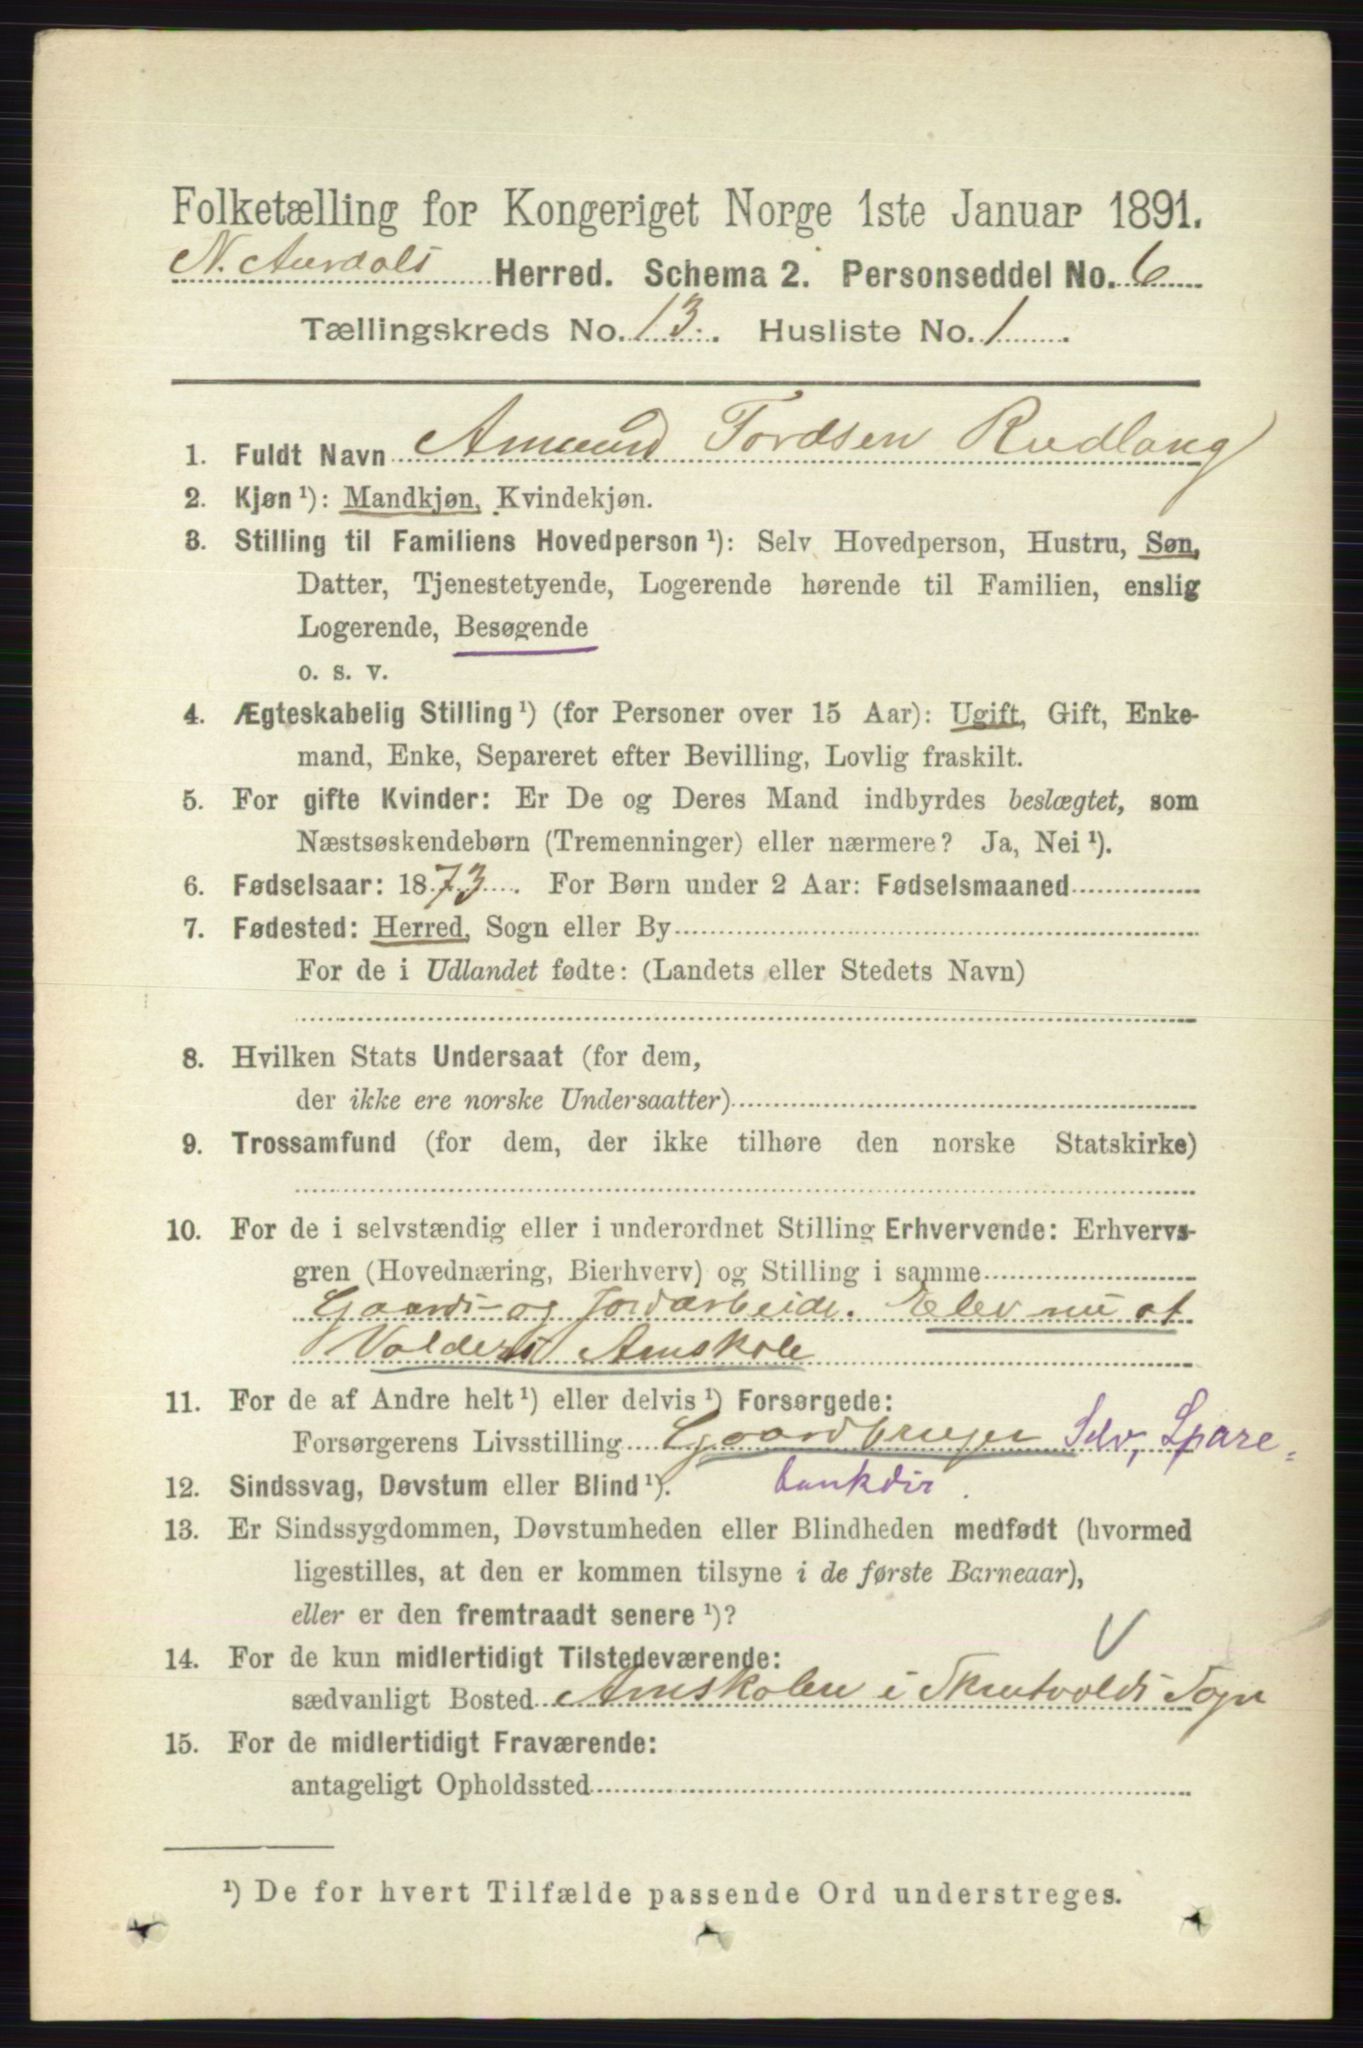 Folketælling for Kongeriget Norge 1ste Januar 1891.
N. Aurdals Herred. Schema 2. Personseddel No. 6
Tællingskreds No. 13. Husliste No. 1
1. Fuldt Navn Amund Tordsen Rudlang
2. Kjøn ¹): Mandkjøn, Kvindekjøn.
3. Stilling til Familiens Hovedperson ¹): Selv Hovedperson, Hustru, Søn,
Datter, Tjenestetyende, Logerende hørende til Familien, enslig
Logerende, Besøgende
o. s. v.
4. Ægteskabelig Stilling ¹) (for Personer over 15 Aar): Ugift, Gift, Enke-
mand, Enke, Separeret efter Bevilling, Lovlig fraskilt.
5. For gifte Kvinder: Er De og Deres Mand indbyrdes beslægtet, som
Næstsøskendebørn (Tremenninger) eller nærmere? Ja, Nei ¹).
6. Fødselsaar: 1873. For Børn under 2 Aar: Fødselsmaaned
7. Fødested: Herred, Sogn eller By
For de i Udlandet fødte: (Landets eller Stedets Navn)
8. Hvilken Stats Undersaat (for dem,
der ikke ere norske Undersaatter)
9. Trossamfund (for dem, der ikke tilhøre den norske Statskirke)
10. For de i selvstændig eller i underordnet Stilling Erhvervende: Erhvervs-
gren (Hovednæring, Bierhverv) og Stilling i samme
Gaards- og Jordarbeide. Elev nu af
Valders Amskole
11. For de af Andre helt ¹) eller delvis ¹) Forsørgede:
Forsørgerens Livsstilling Gaardbruger Selv, Spare-
12. Sindssvag, Døvstum eller Blind ¹). bankdir.
13. Er Sindssygdommen, Døvstumheden eller Blindheden medfødt (hvormed
ligestilles, at den er kommen tilsyne i de første Barneaar),
eller er den fremtraadt senere ¹)?
14. For de kun midlertidigt Tilstedeværende:
sædvanligt Bosted Amskolen i Skrutvolds Sogn
15. For de midlertidigt Fraværende:
antageligt Opholdssted
¹) De for hvert Tilfælde passende Ord understreges.